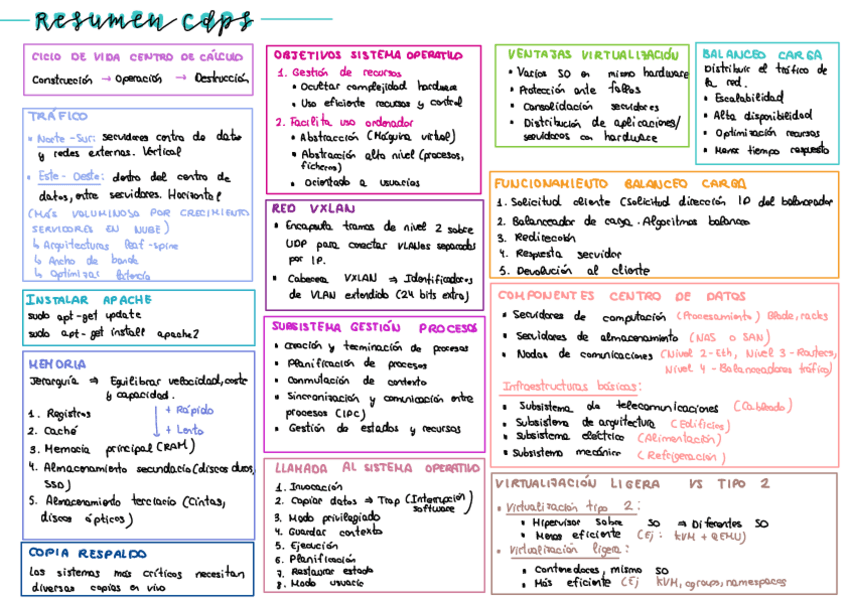 RESUMEN CDPS
CICLO DE VIDA CENTRO DE CÁLCULO
Construcción → Operación → Destrucción
TRÁFICO
• Norte-Sur: servidores centro de datos
y redes externas. Vertical
• Este-Oeste: dentro del centro de
datos, entre servidores. Horizontal
(MÁS VOLUMINOSO POR CRECIMIENTO
SERVIDORES EN NUBE)
↳ Arquitecturas leaf-spine
↳ Ancho de banda
↳ Optimizar latencia
INSTALAR APACHE
sudo apt-get update
sudo apt-get install apache2
MEMORIA
Jerarquía ⇒ Equilibrar velocidad, coste
y capacidad.
1. Registros
2. Caché
3. Memoria principal (RAM)
4. Almacenamiento secundario (discos duros,
SSD)
5. Almacenamiento terciario (Cintas,
discos ópticos)
+ Rápido
↓ + Lento
COPIA RESPALDO
Los sistemas más críticos necesitan
diversas copias en vivo
OBJETIVOS SISTEMA OPERATIVO
1. Gestión de recursos
• Ocultar complejidad hardware
• Uso eficiente recursos y control
2. Facilita uso ordenador
• Abstracción (Máquina virtual)
• Abstracción alto nivel (procesos,
ficheros)
• Orientado a usuarios
RED VXLAN
• Encapsula tramas de nivel 2 sobre
UDP para conectar VLANes separadas
por IP.
• Cabecera VXLAN ⇒ Identificadores
de VLAN extendido (24 bits extra)
SUBSISTEMA GESTIÓN PROCESOS
• Creación y terminación de procesos
• Planificación de procesos
• Conmutación de contexto
• Sincronización y comunicación entre
procesos (IPC)
• Gestión de estados y recursos
LLAMADA AL SISTEMA OPERATIVO
1. Invocación
2. Copiar datos ⇒ Trap (Interrupción
software)
3. Modo privilegiado
4. Guardar contexto
5. Ejecución
6. Planificación
7. Restaurar estado
8. Modo usuario
VENTAJAS VIRTUALIZACIÓN
• Varios SO en mismo hardware
• Protección ante fallos
• Consolidación servidores
• Distribución de aplicaciones/
servidores con hardware
BALANCEO CARGA
Distribuir el tráfico de
la red.
• Escalabilidad
• Alta disponibilidad
• Optimización recursos
• Menor tiempo respuesta
FUNCIONAMIENTO BALANCEO CARGA
1. Solicitud cliente (Solicitud dirección IP del balanceador
2. Balanceador de carga. Algoritmos balanceo
3. Redirección
4. Respuesta servidor
5. Devolución al cliente
COMPONENTES CENTRO DE DATOS
• Servidores de computación (Procesamiento) Blade, racks
• Servidores de almacenamiento (NAS o SAN)
• Nodos de comunicaciones (Nivel 2-Eth, Nivel 3-Routers,
Nivel 4-Balanceadores tráfico)
Infraestructuras básicas:
• Subsistema de telecomunicaciones (Cableado)
• Subsistema de arquitectura (Edificios)
• Subsistema eléctrico (Alimentación)
• Subsistema mecánico (Refrigeración)
VIRTUALIZACIÓN LIGERA VS TIPO 2
• Virtualización tipo 2:
• Hipervisor sobre SO ⇒ Diferentes SO
• Menos eficiente (Ej: KVM + QEMU)
• Virtualización ligera:
• Contenedores, mismo SO
• Más eficiente (Ej KVM, cgroups, namespaces